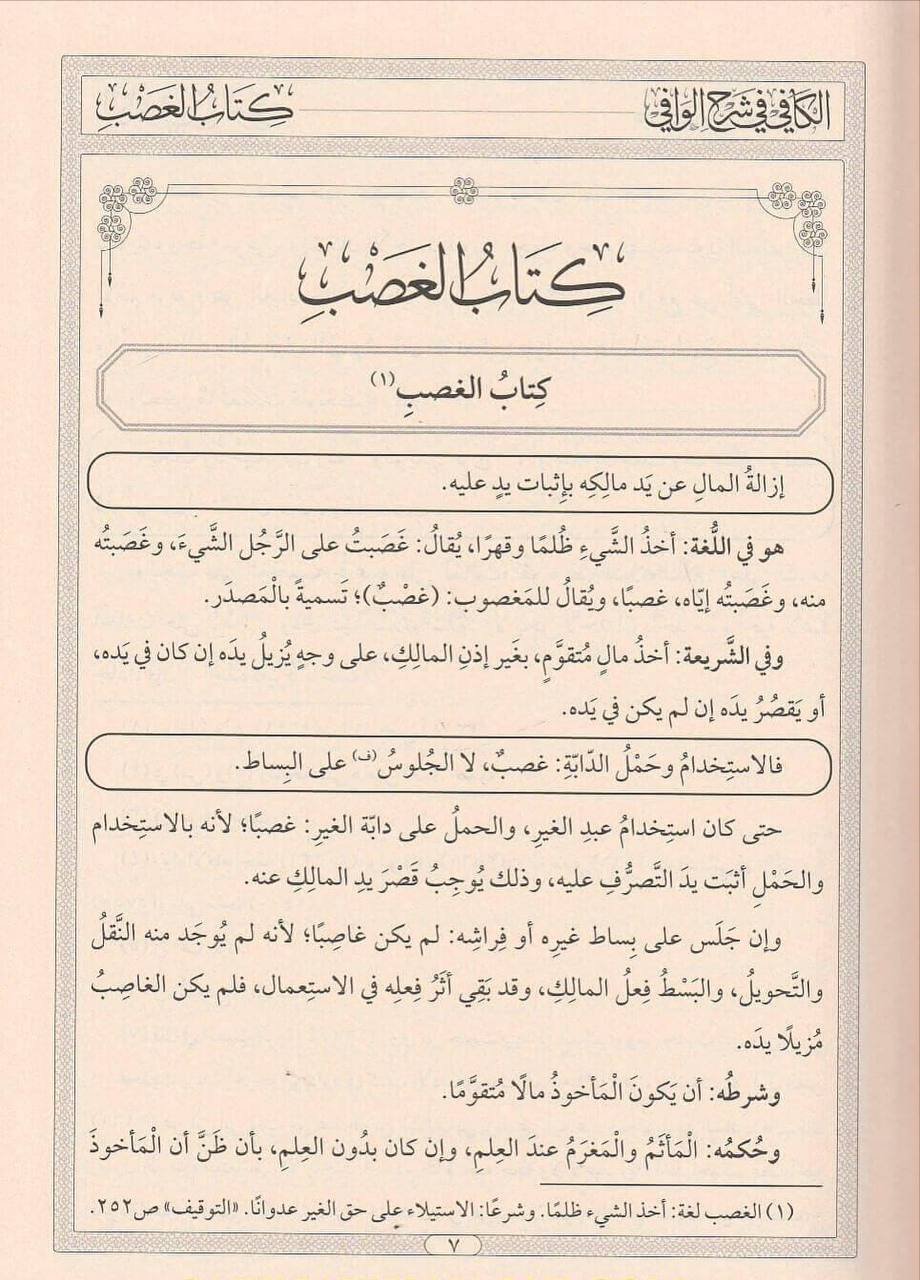 الكافي في شرح الوافي
كِتَابُ الغَصْبِ
كِتَابُ الغَصْبِ
كِتابُ الغصبِ(١)
إزالةُ المالِ عن يَد مالِكِه بإِثبات يدٍ عليه.
هو في اللُّغة: أخذُ الشَّيءِ ظُلمًا وقهرًا، يُقالُ: غَصَبتُ على الرَّجُل الشَّيءَ، وغَصَبتُه
منه، وغَصَبتُه إيّاه، غصبًا، ويُقالُ للمَغصوب: (غصْبٌ)؛ تَسميةً بالْمَصدَر.
وفي الشَّريعة: أخذُ مالٍ مُتقوَّمٍ، بغَير إذنِ المالِكِ، على وجهٍ يُزيلُ يدَه إن كان في يَده،
أو يَقصُرُ يدَه إن لم يكن في يَده.
فالاستِخدامُ وحَمْلُ الدّابّةِ: غصبٌ، لا الجُلوسُ(ف) على البِساط.
حتى كان استِخدامُ عبدِ الغيرِ، والحملُ على دابّة الغيرِ: غصبًا؛ لأنه بالاستِخدام
والحَمْلِ أثبَت يدَ التَّصرُّفِ عليه، وذلك يُوجِبُ قَصْرَ يدِ المالكِ عنه.
وإن جَلَس على بِساط غيرِه أو فِراشِه: لم يكن غاصِبًا؛ لأنه لم يُوجَد منه النَّقلُ
والتَّحويلُ، والبَسْطُ فِعلُ المالِكِ، وقد بَقِي أثَرُ فِعلِه في الاستِعمال، فلم يكن الغاصِبُ
مُزيلًا يدَه.
وشرطُه: أن يَكونَ الْمَأخوذُ مالًا مُتقوَّمًا.
وحُكمُه: الْمَأثَمُ والْمَغرَمُ عندَ العِلمِ، وإن كان بدُون العِلمِ، بأن ظَنَّ أن الْمَأخوذَ
(١) الغصب لغة: أخذ الشيء ظلمًا. وشرعًا: الاستيلاء على حق الغير عدوانًا. «التوقيف» ص٢٥٢.
٧